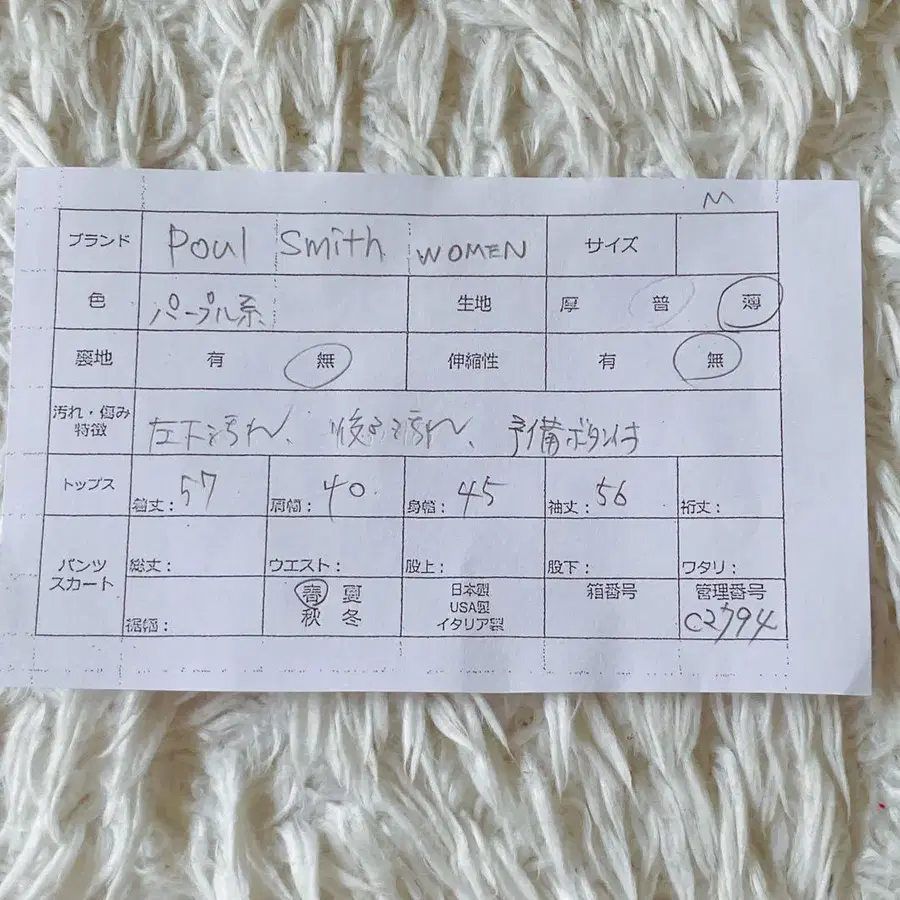 M
ブランド Poul Smith WOMEN サイズ
色 パープル系 生地 厚 普 薄
裏地 有 無 伸縮性 有 無
汚れ・傷み
特徴 左下汚れ、 後ろ汚れ、 予備ボタン付
トップス 着丈:57 肩幅:40 身幅:45 袖丈:56 裄丈:
パンツ
スカート 総丈: ウエスト: 股上: 股下: ワタリ:
裾幅: 春 夏 日本製 箱番号 管理番号
秋 冬 USA製 C2794
イタリア製